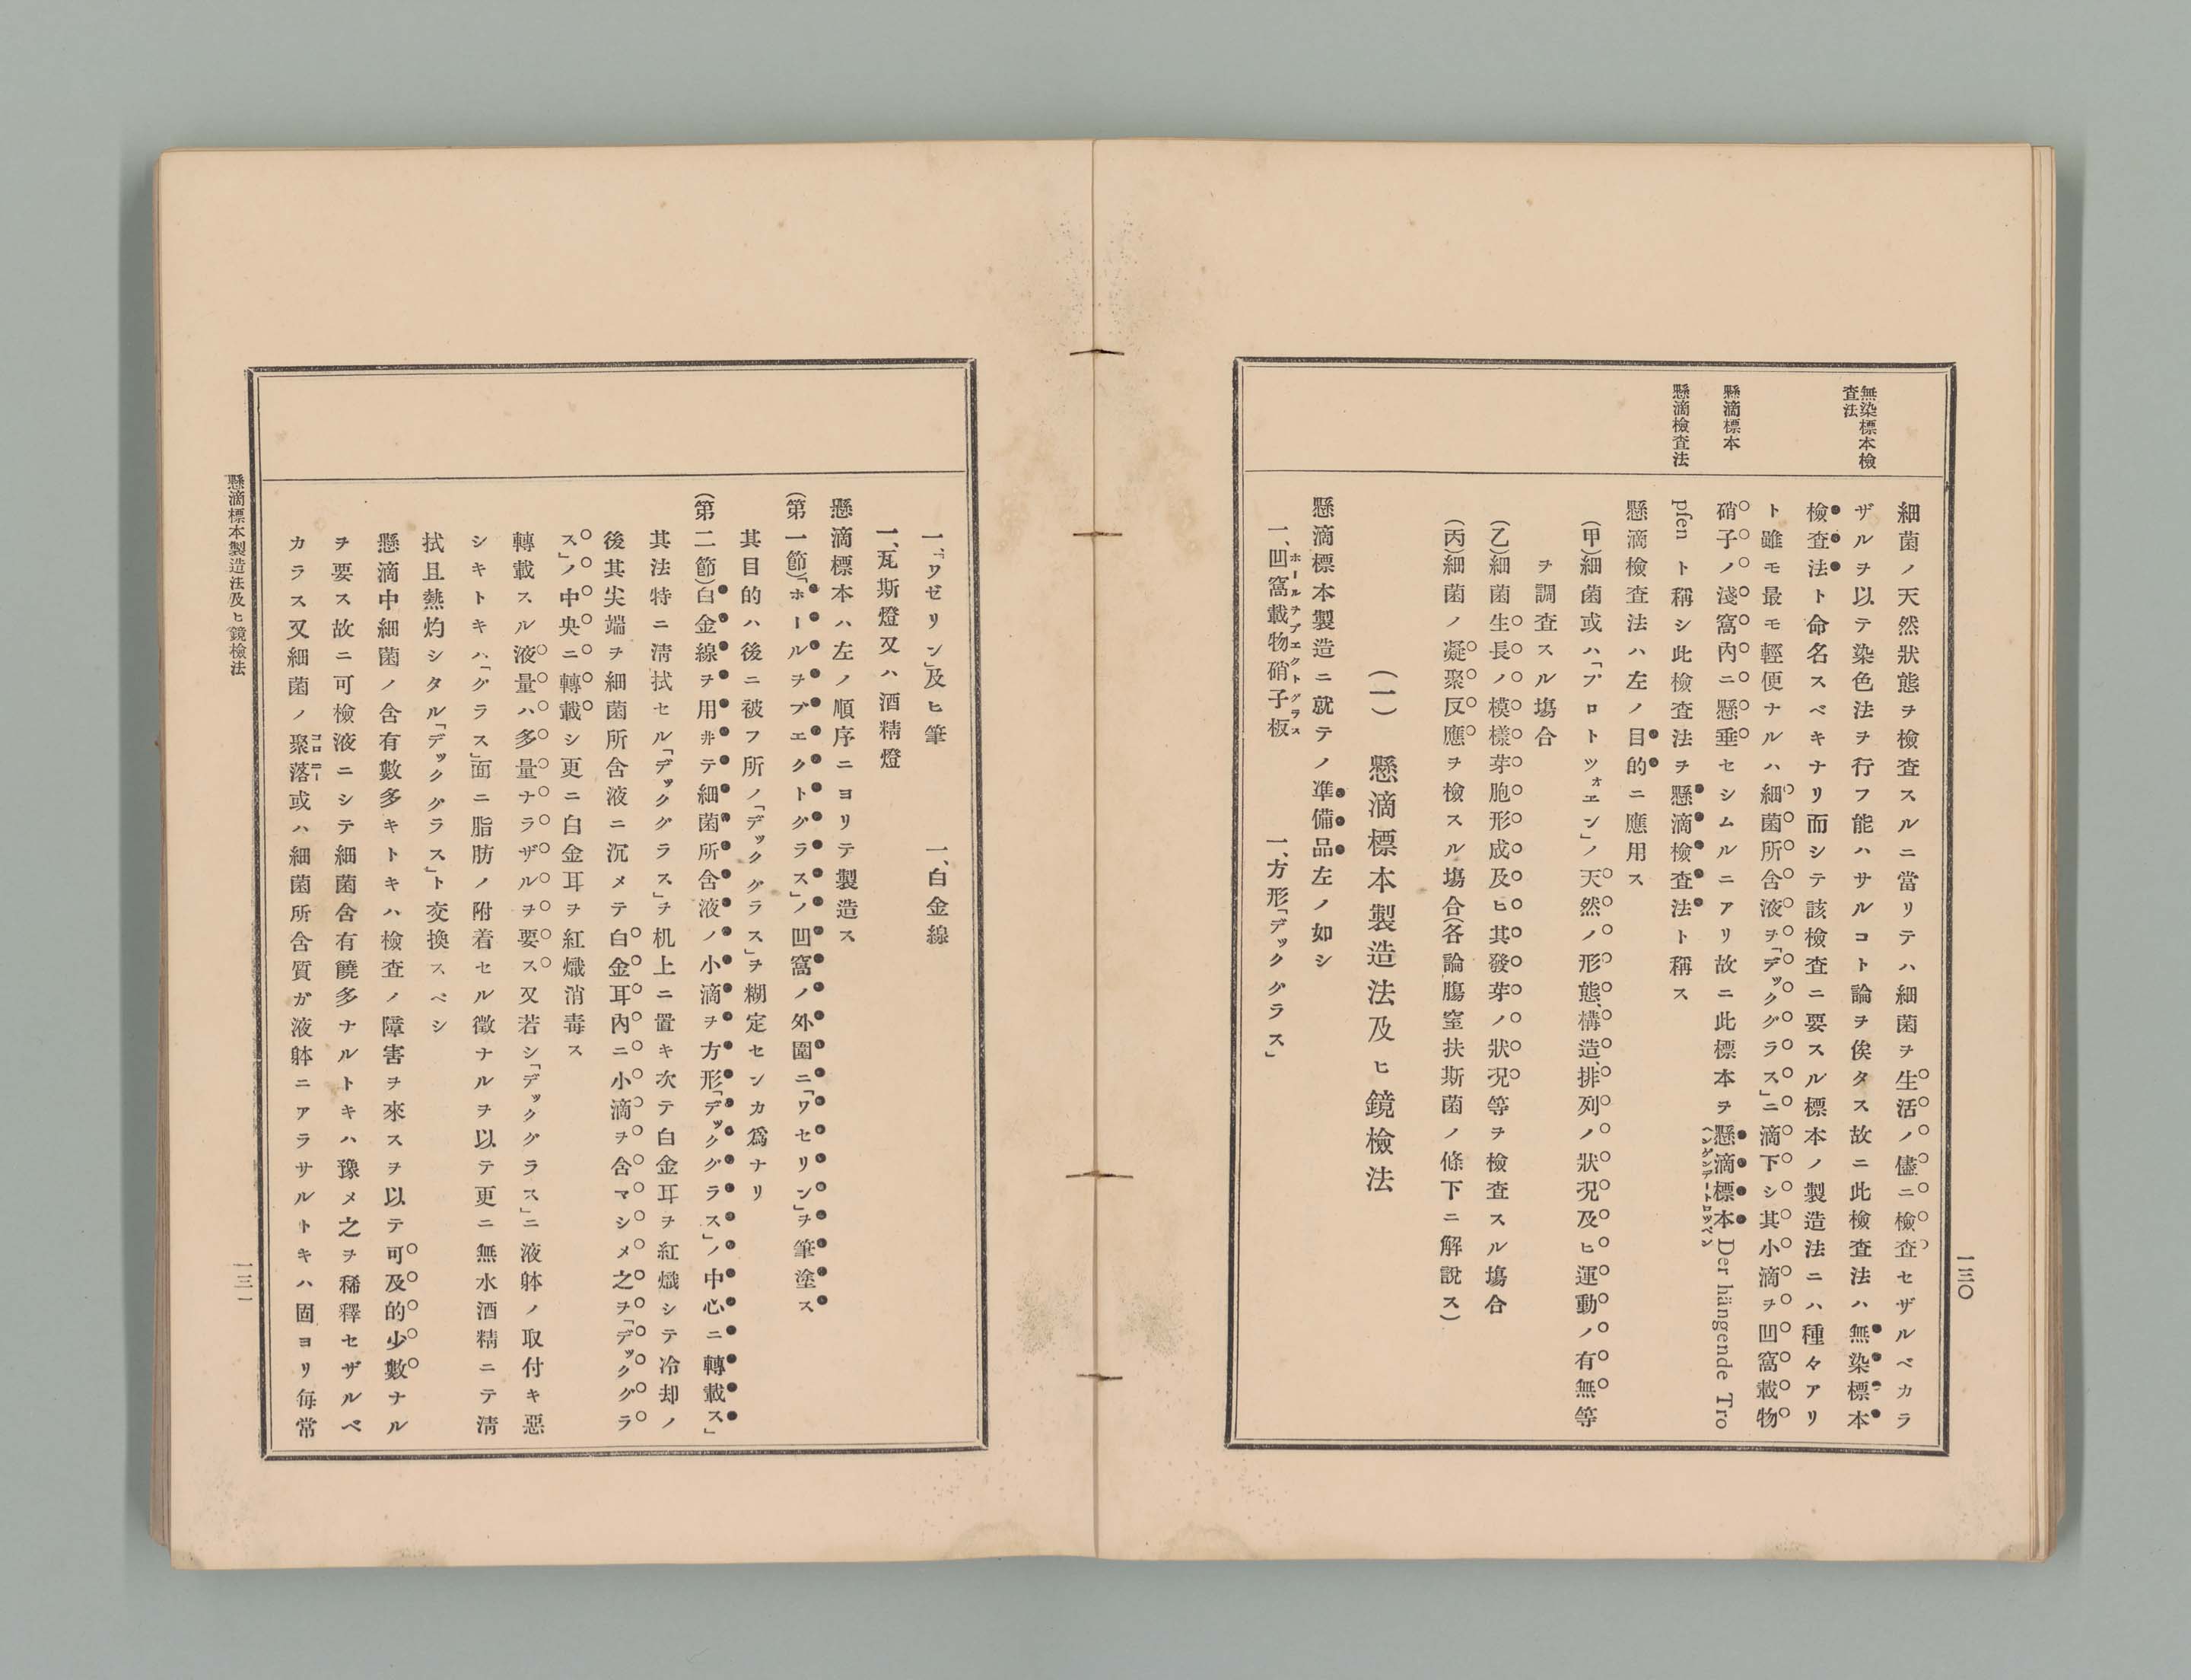 一三〇
無染標本檢
査法
懸滴標本
懸滴檢査法
細菌ノ天然狀態ヲ檢査スルニ當リテハ細菌ヲ生活ノ儘ニ檢査セザルベカラ
ザルヲ以テ染色法ヲ行フ能ハサルコト論ヲ俟タス故ニ此檢査法ハ無染標本
檢査法ト命名スベキナリ而シテ該檢査ニ要スル標本ノ製造法ニハ種々アリ
ト雖モ最モ輕便ナルハ細菌所含液ヲ「デックグラス」ニ滴下シ其小滴ヲ凹窩載物
硝子ノ淺窩內ニ懸垂セシムルニアリ故ニ此標本ヲ懸滴標本ヘンゲンデートロッペン Der hängende Tro
pfen ト稱シ此檢査法ヲ懸滴檢査法ト稱ス
懸滴檢査法ハ左ノ目的ニ應用ス
(甲)細菌或ハ「プロトツォエン」ノ天然ノ形態、構造、排列ノ狀況及ヒ運動ノ有無等
ヲ調査スル塲合
(乙)細菌生長ノ模樣芽胞形成及ヒ其發芽ノ狀況等ヲ檢査スル塲合
(丙)細菌ノ凝聚反應ヲ檢スル塲合(各論膓窒扶斯菌ノ條下ニ解說ス)
(一) 懸滴標本製造法及ヒ鏡檢法
懸滴標本製造ニ就テノ準備品左ノ如シ
一、凹窩載物硝子板ホールヲブエクトグラス 一、方形「デックグラス」
一、「ワゼリン」及ヒ筆 一、白金線
一、瓦斯燈又ハ酒精燈
懸滴標本ハ左ノ順序ニヨリテ製造ス
(第一節)「ホールヲブエクトグラス」ノ凹窩ノ外圍ニ「ワセリン」ヲ筆塗ス
其目的ハ後ニ被フ所ノ「デックグラス」ヲ糊定センカ爲ナリ
(第二節)白金線ヲ用ヰテ細菌所含液ノ小滴ヲ方形「デックグラス」ノ中心ニ轉載ス」
其法特ニ淸拭セル「デックグラス」ヲ机上ニ置キ次テ白金耳ヲ紅熾シテ冷却ノ
後其尖端ヲ細菌所含液ニ沉メテ白金耳內ニ小滴ヲ含マシメ之ヲ「デックグラ
ス」ノ中央ニ轉載シ更ニ白金耳ヲ紅熾消毒ス
轉載スル液量ハ多量ナラザルヲ要ス又若シ「デックグラス」ニ液躰ノ取付キ惡
シキトキハ、「グラス」面ニ脂肪ノ附着セル徵ナルヲ以テ更ニ無水酒精ニテ淸
拭且熱灼シタル「デックグラス」ト交換スベシ
懸滴中細菌ノ含有數多キトキハ檢査ノ障害ヲ來スヲ以テ可及的少數ナル
ヲ要ス故ニ可檢液ニシテ細菌含有饒多ナルトキハ豫メ之ヲ稀釋セザルベ
カラス又細菌ノ聚落コロニー或ハ細菌所含質ガ液躰ニアラサルトキハ固ヨリ每常
懸滴標本製造法及ヒ鏡檢法
一三一